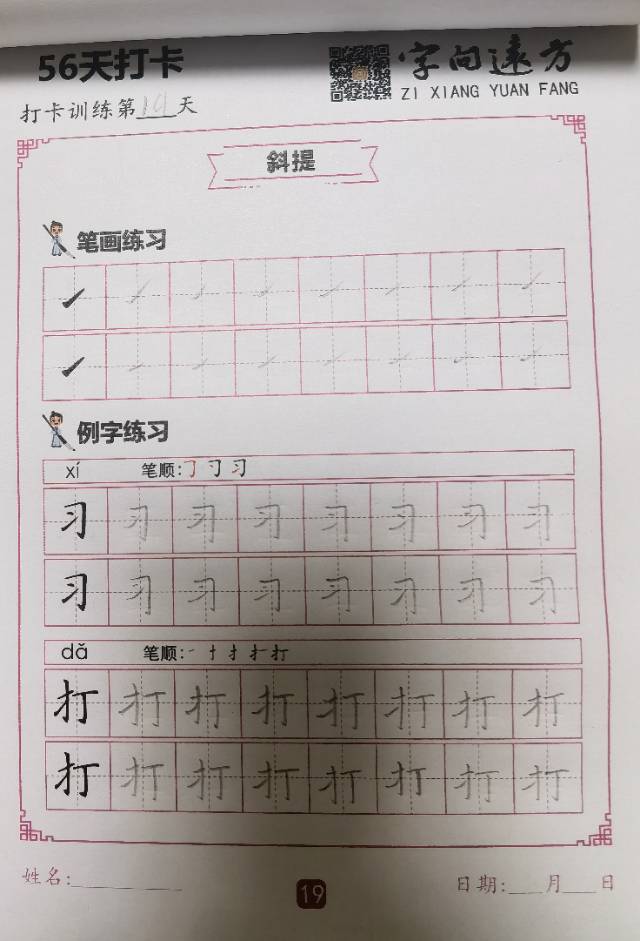 56天打卡
字向遠方
ZI XIANG YUAN FANG
打卡训练第19天
斜提
笔画练习
例字练习
xí 笔顺:㇆ 习
习 习 习 习 习 习 习 习
习 习 习 习 习 习 习 习
dǎ 笔顺:一 扌 打
打 打 打 打 打 打 打 打
打 打 打 打 打 打 打 打
姓名:
19
日期: 月 日